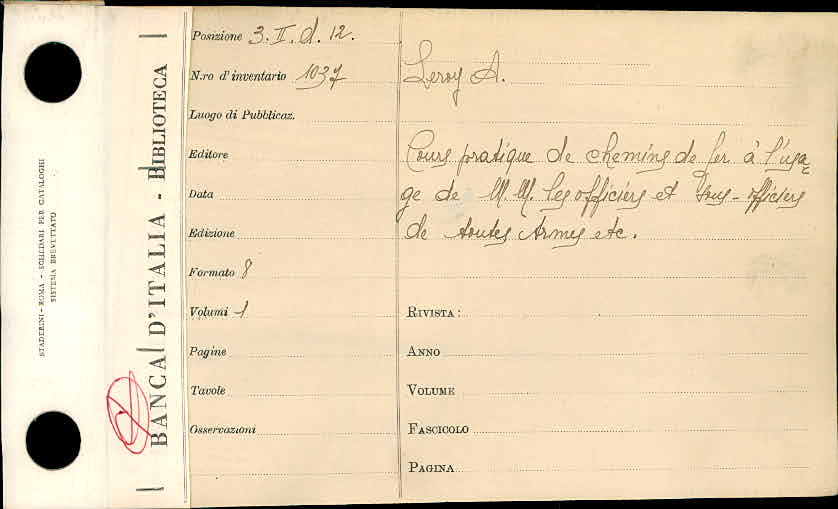 STADERINI - ROMA - SCHEDARI PER CATALOGHI
SISTEMA BREVETTATO
BANCA D'ITALIA - BIBLIOTECA
Posizione 3. II. d. 12.
N.ro d'inventario 1037
Luogo di Pubblicaz.
Editore
Data
Edizione
Formato 8
Volumi 1
Pagine
Tavole
Osservazioni
Leroy A.
Cours pratique de chemins de fer à l'usa=
ge de M.M. les officiers et sous-officiers
de toutes Armes etc.
RIVISTA:
ANNO
VOLUME
FASCICOLO
PAGINA